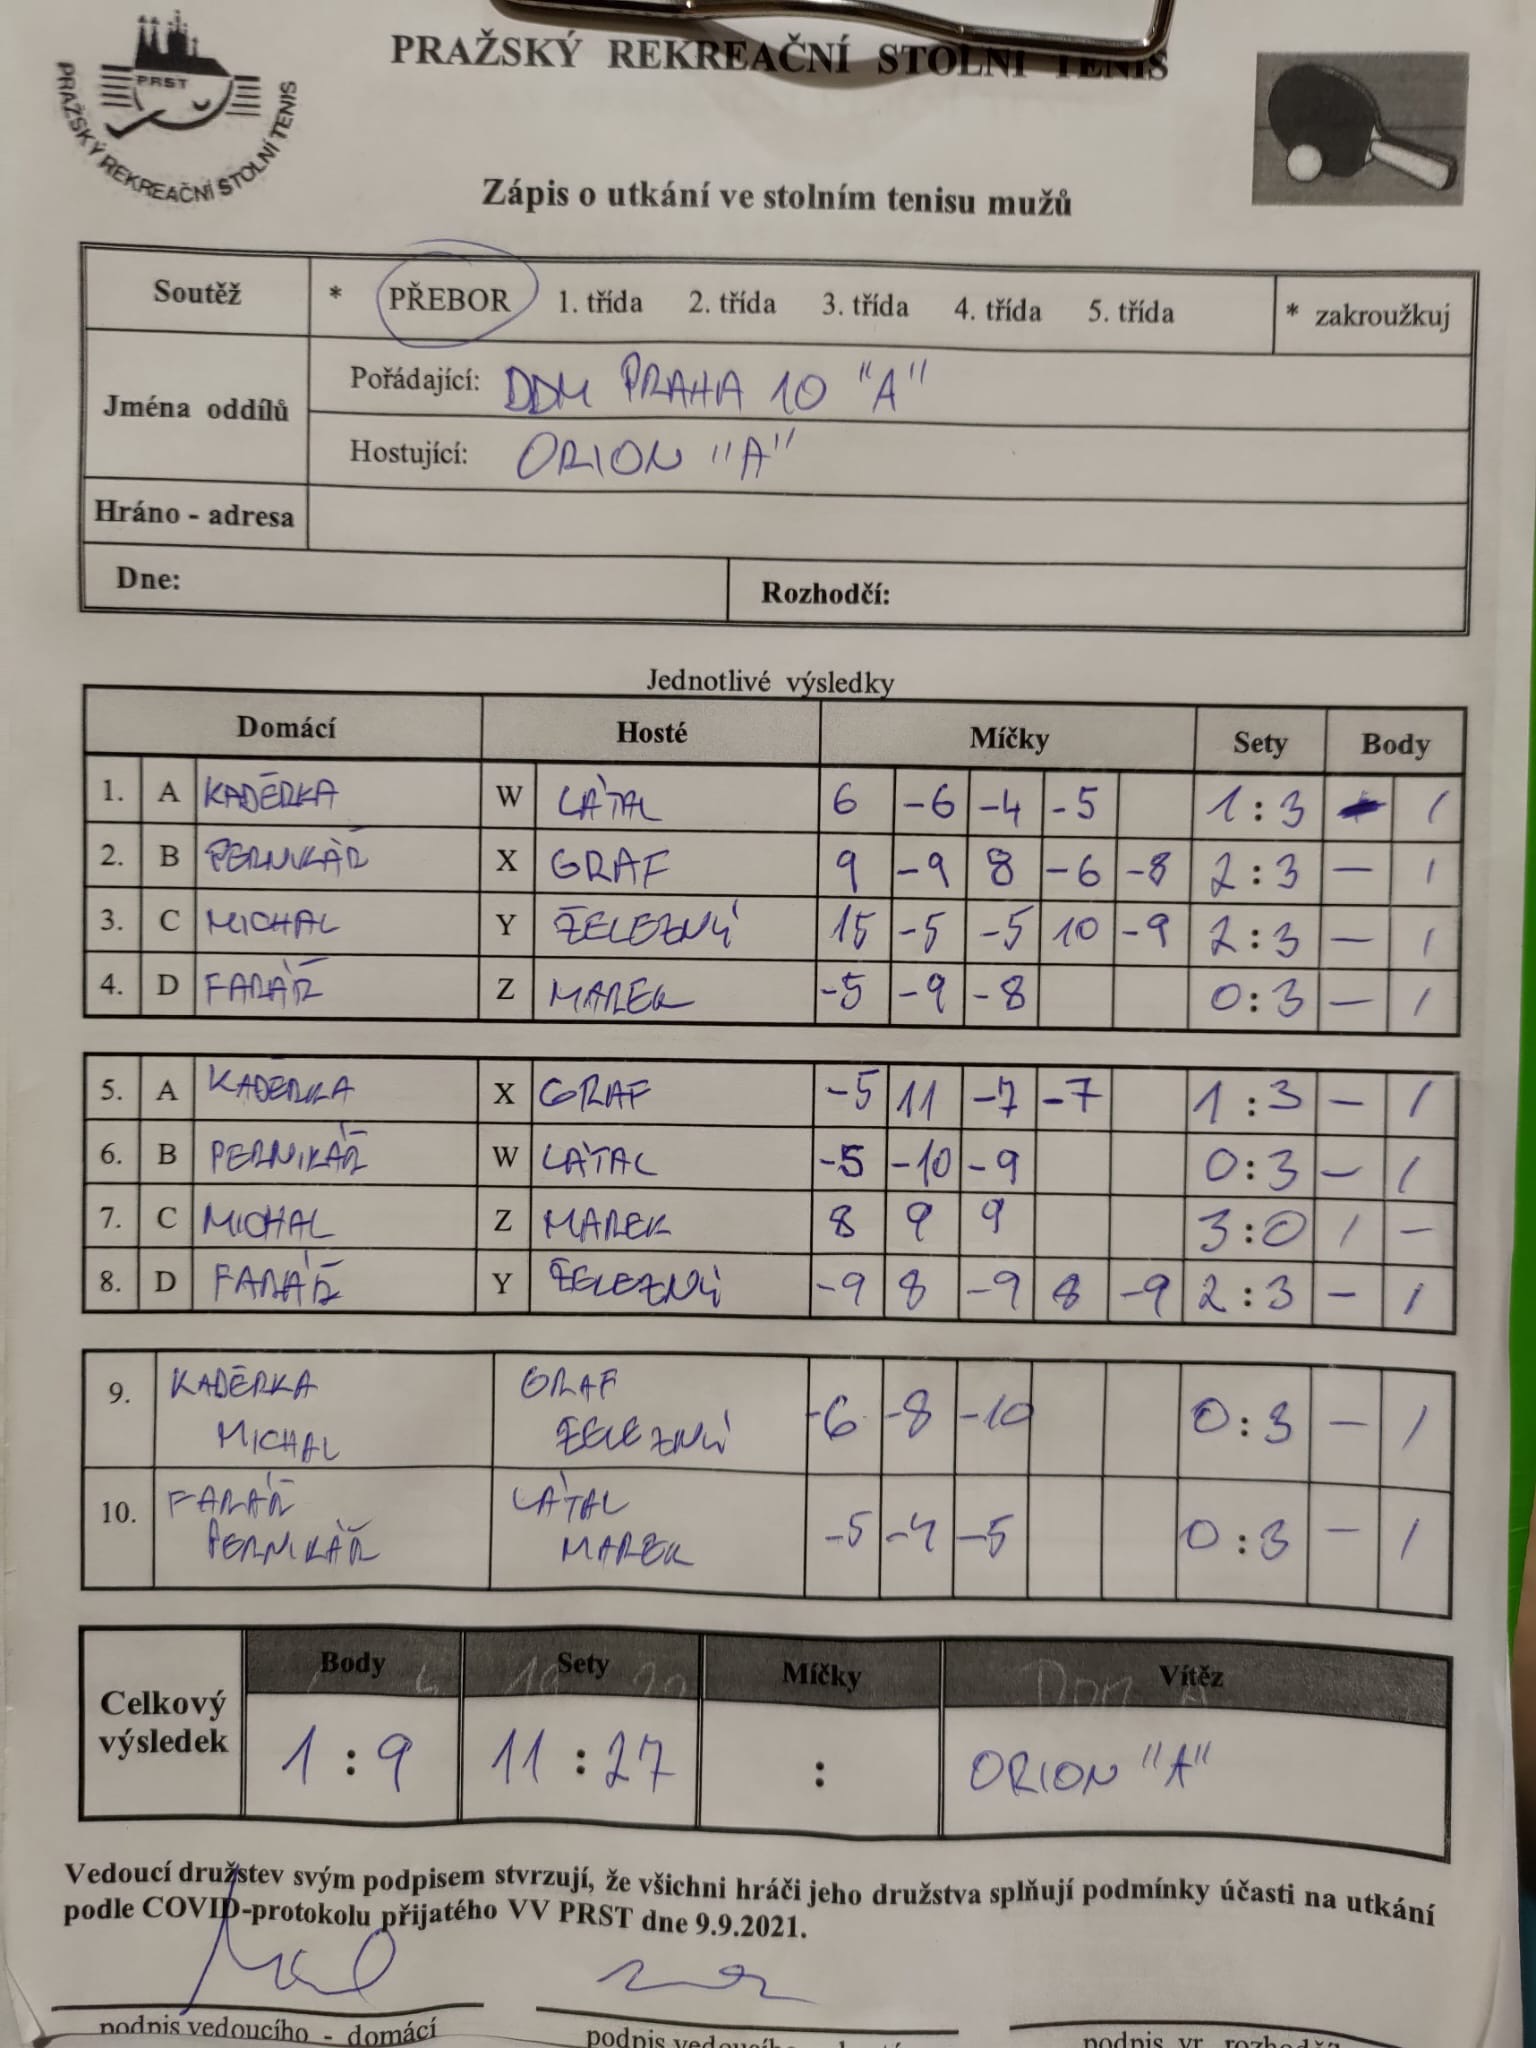 PRAŽSKÝ REKREAČNÍ STOLNÍ TENIS
PRST
PRAŽSKÝ REKREAČNÍ STOLNÍ TENIS
Zápis o utkání ve stolním tenisu mužů
Soutěž * PŘEBOR 1. třída 2. třída 3. třída 4. třída 5. třída * zakroužkuj
Jména oddílů
Pořádající: DDM PRAHA 10 "A"
Hostující: ORION "A"
Hráno - adresa
Dne: Rozhodčí:
Jednotlivé výsledky
Domácí Hosté Míčky Sety Body
1. A KADĚRKA W LÁTAL 6 -6 -4 -5 1:3 1
2. B PERNIKÁŘ X GRAF 9 -9 8 -6 -8 2:3 - 1
3. C MICHAL Y ŽELEZNÝ 15 -5 -5 10 -9 2:3 - 1
4. D FARÁŘ Z MAREK -5 -9 -8 0:3 - 1
5. A KADĚRKA X GRAF -5 11 -7 -7 1:3 - 1
6. B PERNIKÁŘ W LÁTAL -5 -10 -9 0:3 - 1
7. C MICHAL Z MAREK 8 9 9 3:0 1 -
8. D FARÁŘ Y ŽELEZNÝ -9 8 -9 8 -9 2:3 - 1
9. KADĚRKA GRAF -6 -8 -10 0:3 - 1
MICHAL ŽELEZNÝ
10. FARÁŘ LÁTAL -5 -4 -5 0:3 - 1
PERNIKÁŘ MAREK
Celkový výsledek
Body Sety Míčky Vítěz
1:9 11:27 : ORION "A"
Vedoucí družstev svým podpisem stvrzují, že všichni hráči jeho družstva splňují podmínky účasti na utkání
podle COVID-protokolu přijatého VV PRST dne 9.9.2021.
podpis vedoucího - domácí podpis vedoucího podpis vr. rozhodčí